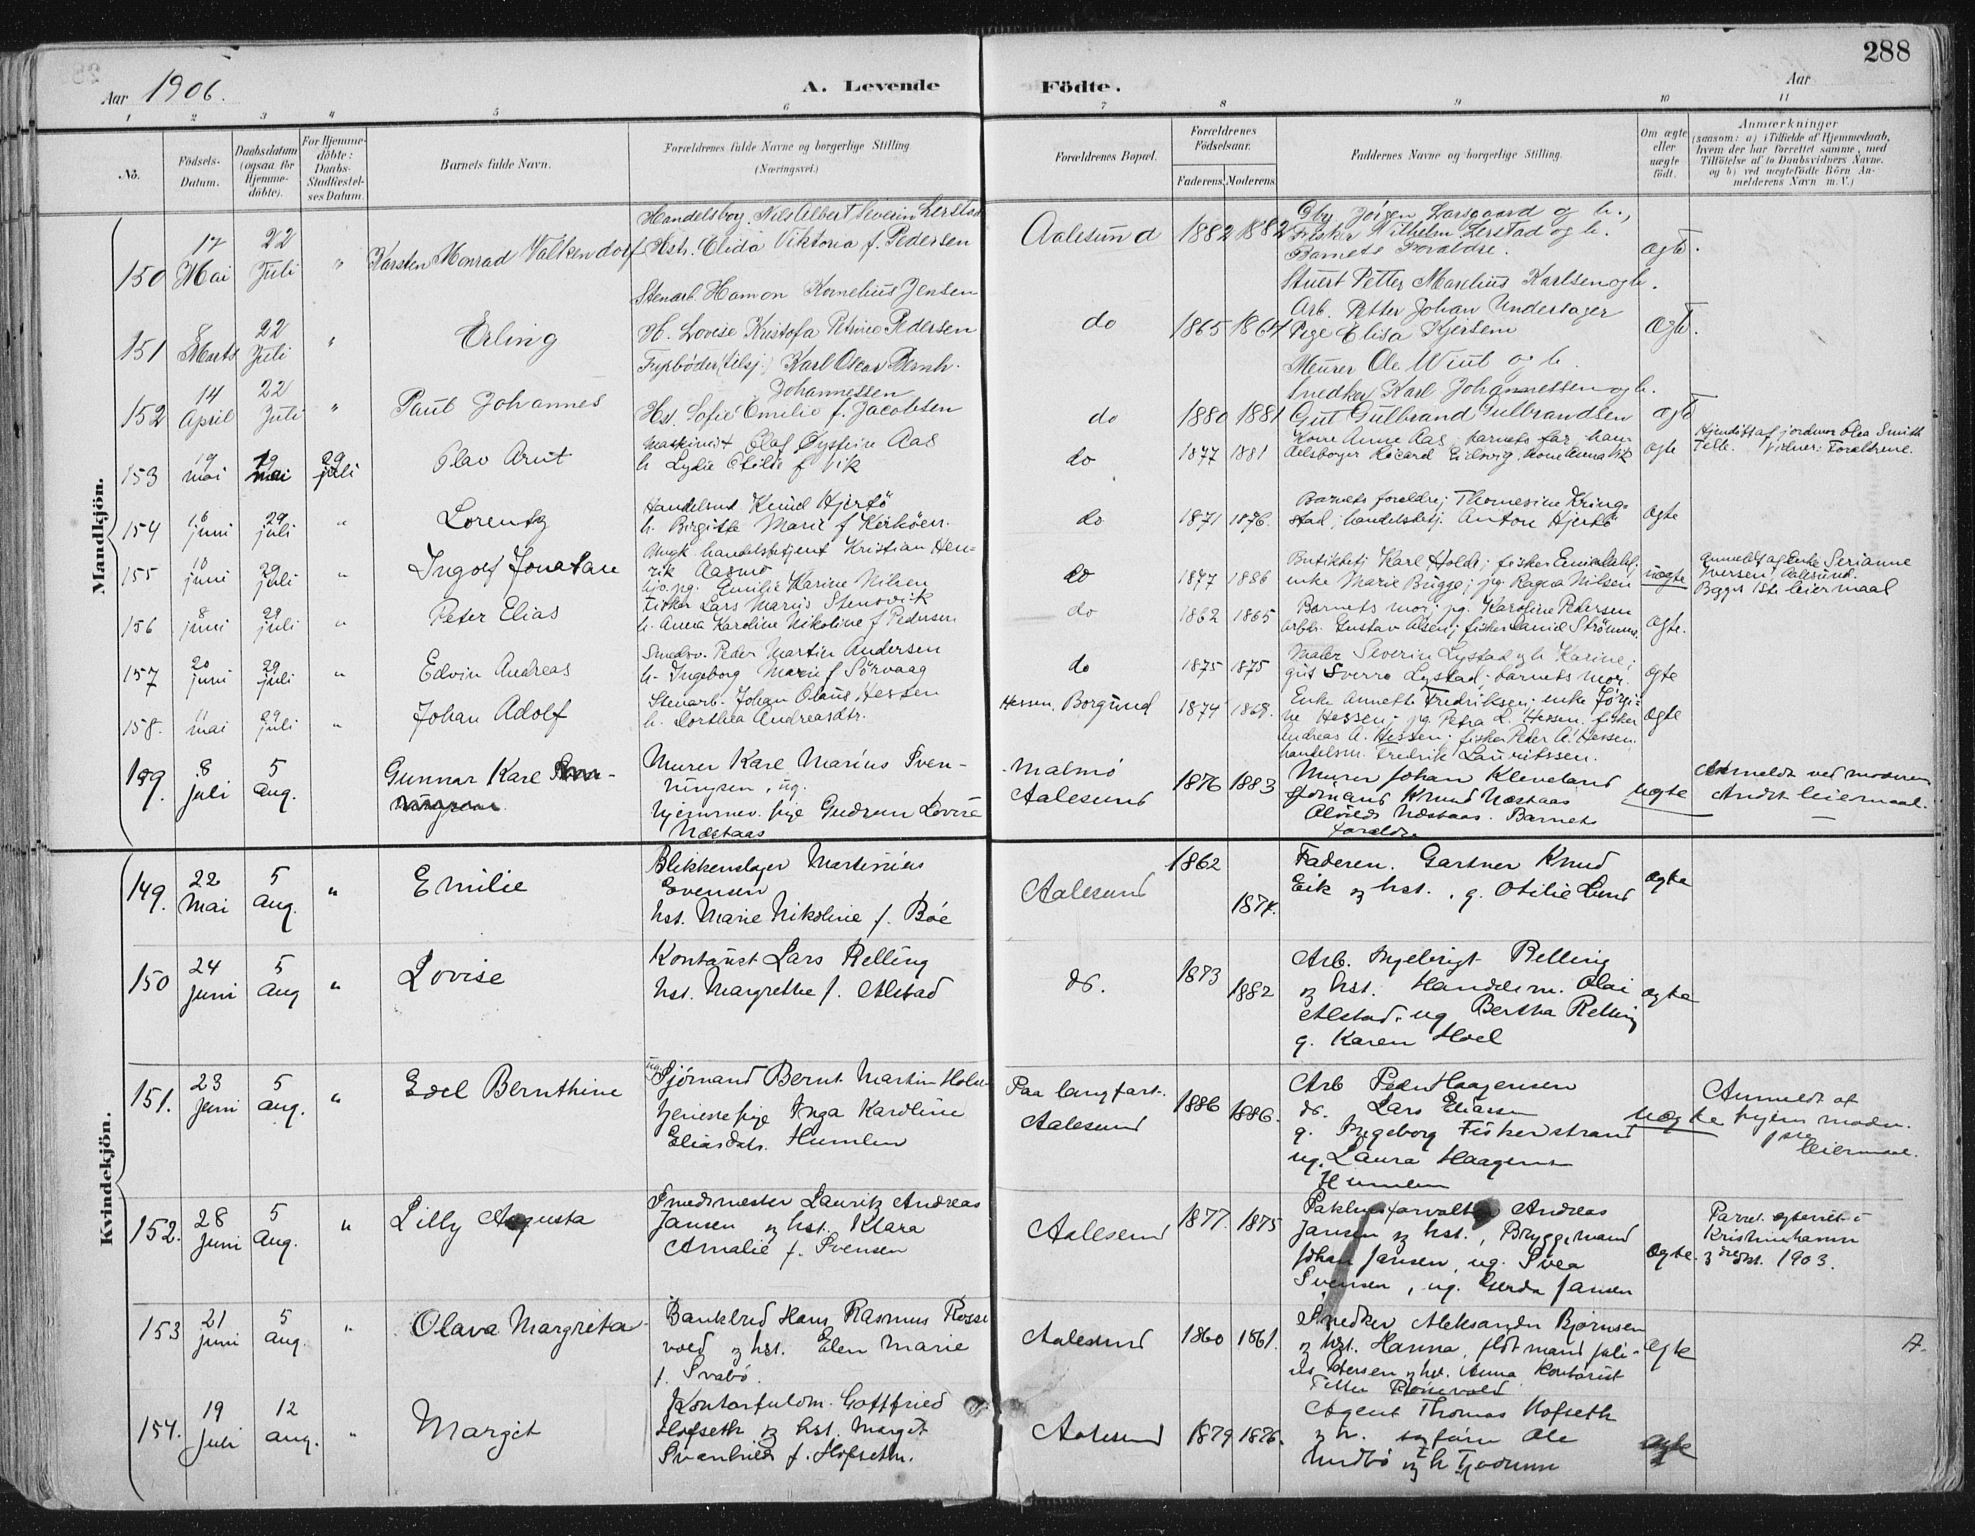 288
Aar 1906.
A. Levende Födte.
Aar
1 2 3 4 5 6 7 8 9 10 11
No.
Födsels-Datum.
Daabsdatum (ogsaa for Hjemme-döbte).
For Hjemme-döbte: Daabs-Stadfæstel-ses Datum.
Barnets fulde Navn.
Forældrenes fulde Navne og borgerlige Stilling
(Næringsvei.)
Forældrenes Bopæl.
Forældrenes Födselsaar.
Faderens. Moderens.
Faddernes Navne og borgerlige Stilling.
Om ægte eller uægte födt.
Anmærkninger
(saasom: a) i Tilfælde af Hjemmedaab, hvem der har forrettet samme, med Tilföielse af to Daabsvidners Navne. og b) ved uægtefödte Börn An-melderens Navn m. V.)
Mandkjön.
150 17 Mai 22 Juli " Karsten Monrad Valkendorf
Handelsbog. Nils Albert Severin Lerstad
Hstr. Elida Viktoria f. Pedersen
Aalesund 1882 1882
Jörgen Larsgaard og h.,
Fisker Wilhelm Lerstad og h.
Barnets Foraldre.
ægte.
151 Marts 22 Juli " Erling
Stenarb. Hamon Kornelius Jensen
H. Lovise Kristofa Petrine Pedersen
do 1865 1864
Stuert Petter Marelius Karlsen og h.
Arb. Petter Johan Undersager
Pige Elida
Murer Ole og h.
ægte.
152 14 April 22 Juli " Paul Johannes
Fyrbøder (tilsj.) Karl Oscar Bernh.
Johannessen
Hst. Sofie Emelie f. Jacobsen
do 1880 1881
Snedker Karl Johannessen og h.
Gut Gulbrand Gulbrandsen
ægte
153 19 mai 29 juli Olav Arnt
Maskinist Olaf Øystein Aas
h. Lydia f Vik
do 1877 1881
Kone Anne Aas, barnets far, han-
delsborger Ricard Eidsvig, kone Anna Vik
ægte
af jordmor Olea Smith
Foraldrene.
154 16 juni 29 juli " Lorentz
Handelsmd Knud Hjertö
h. Birgitte Marie f
do 1871 1876.
Barnets foreldre; Thomesine Kring-
stad; handelsbetj. Anton Hjertö
ægte
155 10 juni 29 juli " Ingolf Jonatan
Ungk. handelsbetjent Kristian Hen-
rik Aasmo
pg. Emilie Karine Nilsen
do 1877 1886
Butikbetj Karl Holde; fisker
enke Marie Brigge; pg. Ragna Nilsen
uægte
anmeldt af Enke Serianne
Iversen, Aalesund.
Begges 1ste leiermaal
156 8 juni 29 juli " Peter Elias
Fisker Lars Marius Stensvik
h. Anna Karoline Nikoline f Pedersen
do 1862 1865
Barnets mor; pg. Karoline Pedersen
arbb. Gustav Olsen; fisker Daniel
ægte.
157 20 juni 29 juli " Edvin Andreas
Smedsv. Peder Martin Andersen
h. Ingeborg Marie f Sörvaag
do 1875 1875
Maler Severin Lystad og h Karine;
gut Sverre Lystad - barnets mor.
ægte
158. 11 mai 29 juli " Johan Adolf
Stenarb. Johan Olaus Hessen
h. Dorthea Andreasdtr.
Hessen, Borgund 1874 1868.
Enke Annette Fredriksen, enke Jörgi-
ne Hessen; pg. Petra L. Hessen, fisker
Andreas A. Hessen; fisker Peder A. Hessen,
handelsm. Fredrik Lauritssen.
ægte
159. 8 juli 5 aug. Gunnar Karl
Murer Karl Marius Sven-
ningsen, ug.
hjemmev. pige Gudrun Lovise
Næstaas
Malmö
Aalesund 1876 1883
Murer Johan Kleveland
Sjömand Knud Næstaas
Alvilde Næstaas. Barnets
foraldre
uægte
Anmeldt ved moderen
Andet leiermaal.
Kvindekjön.
149. 22 Mai 5 aug. " Emilie
Blikkenslager Martinius
Evensen
hst. Marie Nikoline f. Böe
Aalesund 1862 1874.
Faderen. Gartner Knud
Eik og hst., g. Otilie Lund
ægte
150 24 juni 5 aug " Lovise
Kontorist Lars Relling
hst. Margrethe f. Alstad
do. 1873 1882
Arb. Ingebrigt Relling
og hst. Handelsm. Olai
Alstad. ug Bertha Relling
g. Karen Hoel
ægte
151. 23 Juni 5 aug. " Edel Bernthine
Sjömand Bernt Martin
tjenestepige Inga Karoline
Eliasdatr. Humlen
Paa langfart.
Aalesund 1886 1886.
Arb Peder Haagensen
do. Lars Eliasen
g. Ingeborg Fiskerstrand
ug. Laura Haagensen
Humlen
uægte
Anmeldt af
leiermaal.
152. 28 Juni 5 aug. " Lilly Augusta
Smedmester Lauritz Andreas
Jansen og hst. Klara
Amalie f. Svensen
Aalesund 1877. 1875
Pakhusforvalter Andreas
Jansen og hst., Bryggemand
Johan Jansen, ug. Svea
Svensen, ug. Gerda Jansen
ægte.
Parret egteviet i
Kristinehamn
1903.
153 21 juni 5 aug. " Olava Margreta
Bankbud Hans Rasmus Rosse-
vold og hst. Elen Marie
f. Svabö.
Aalesund 1860 1861.
Snedker Aleksander Björnsen
og hst. Hanna,
Petersen og hst. Anna Kontorist
ægte
A.
154. 19 juli 12 aug. " Margit
Kontorfuldm. Gottfried
Hofseth og hst. Margit
Svanhild f. Hofseth.
Aalesund 1879 1876.
Agent Thomas Hofseth
og h. Ole
og h
ægte